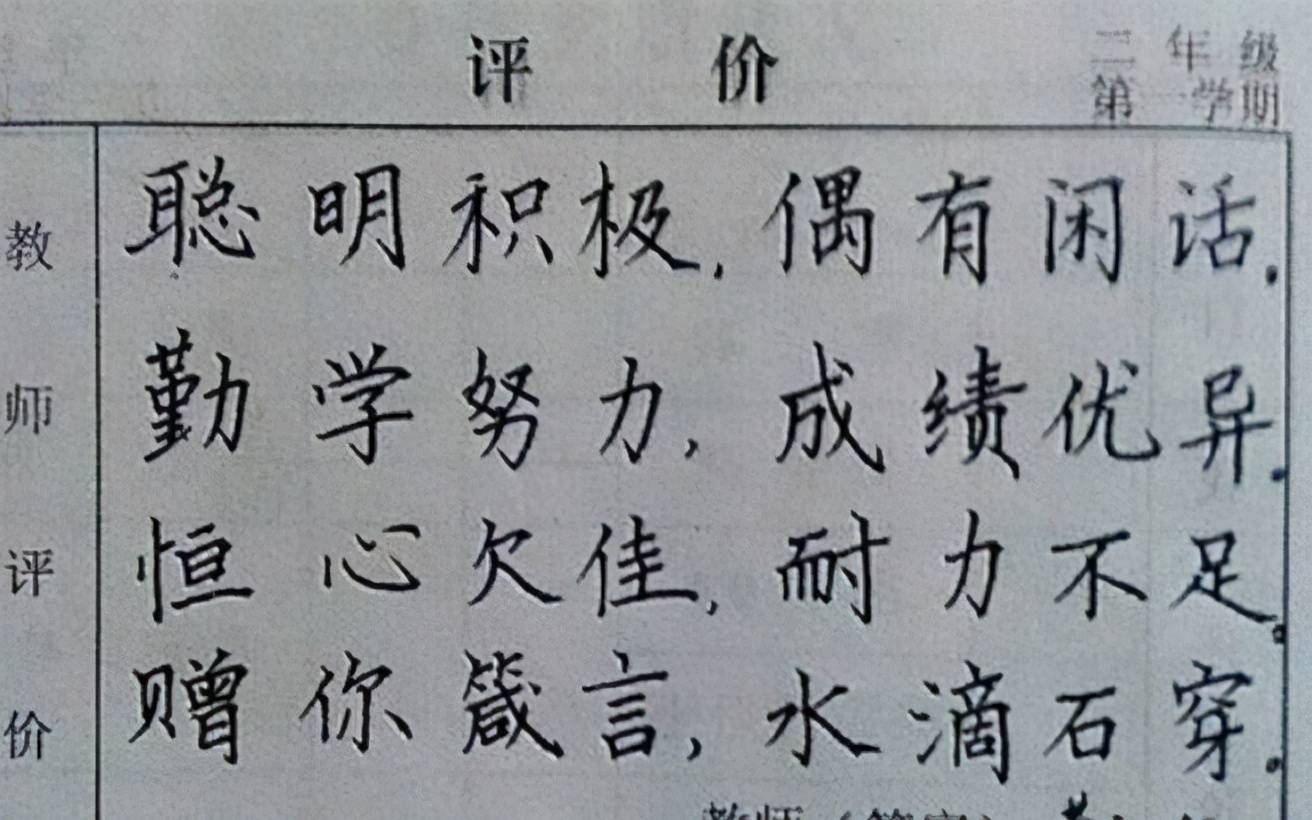 评 价
二 年 级
第一学期
教师评价
聪明积极,偶有闲话.
勤学努力,成绩优异.
恒心欠佳,耐力不足.
赠你箴言,水滴石穿.
教师(签字)